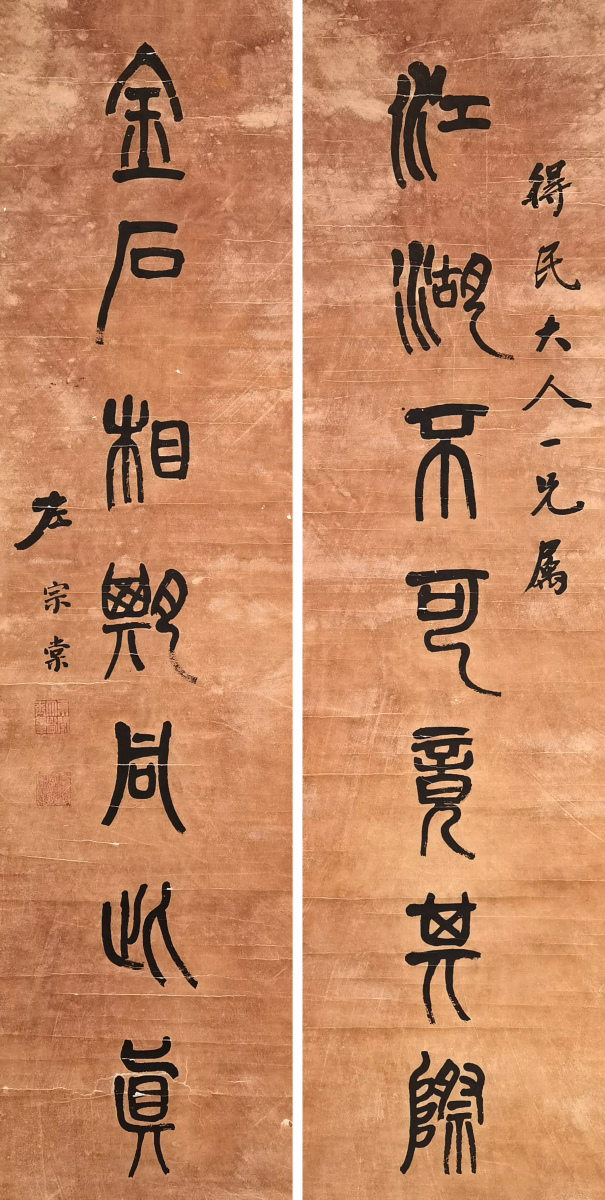 得民大人一兄属
江湖不可竟其際
金石相期同此眞
左宗棠